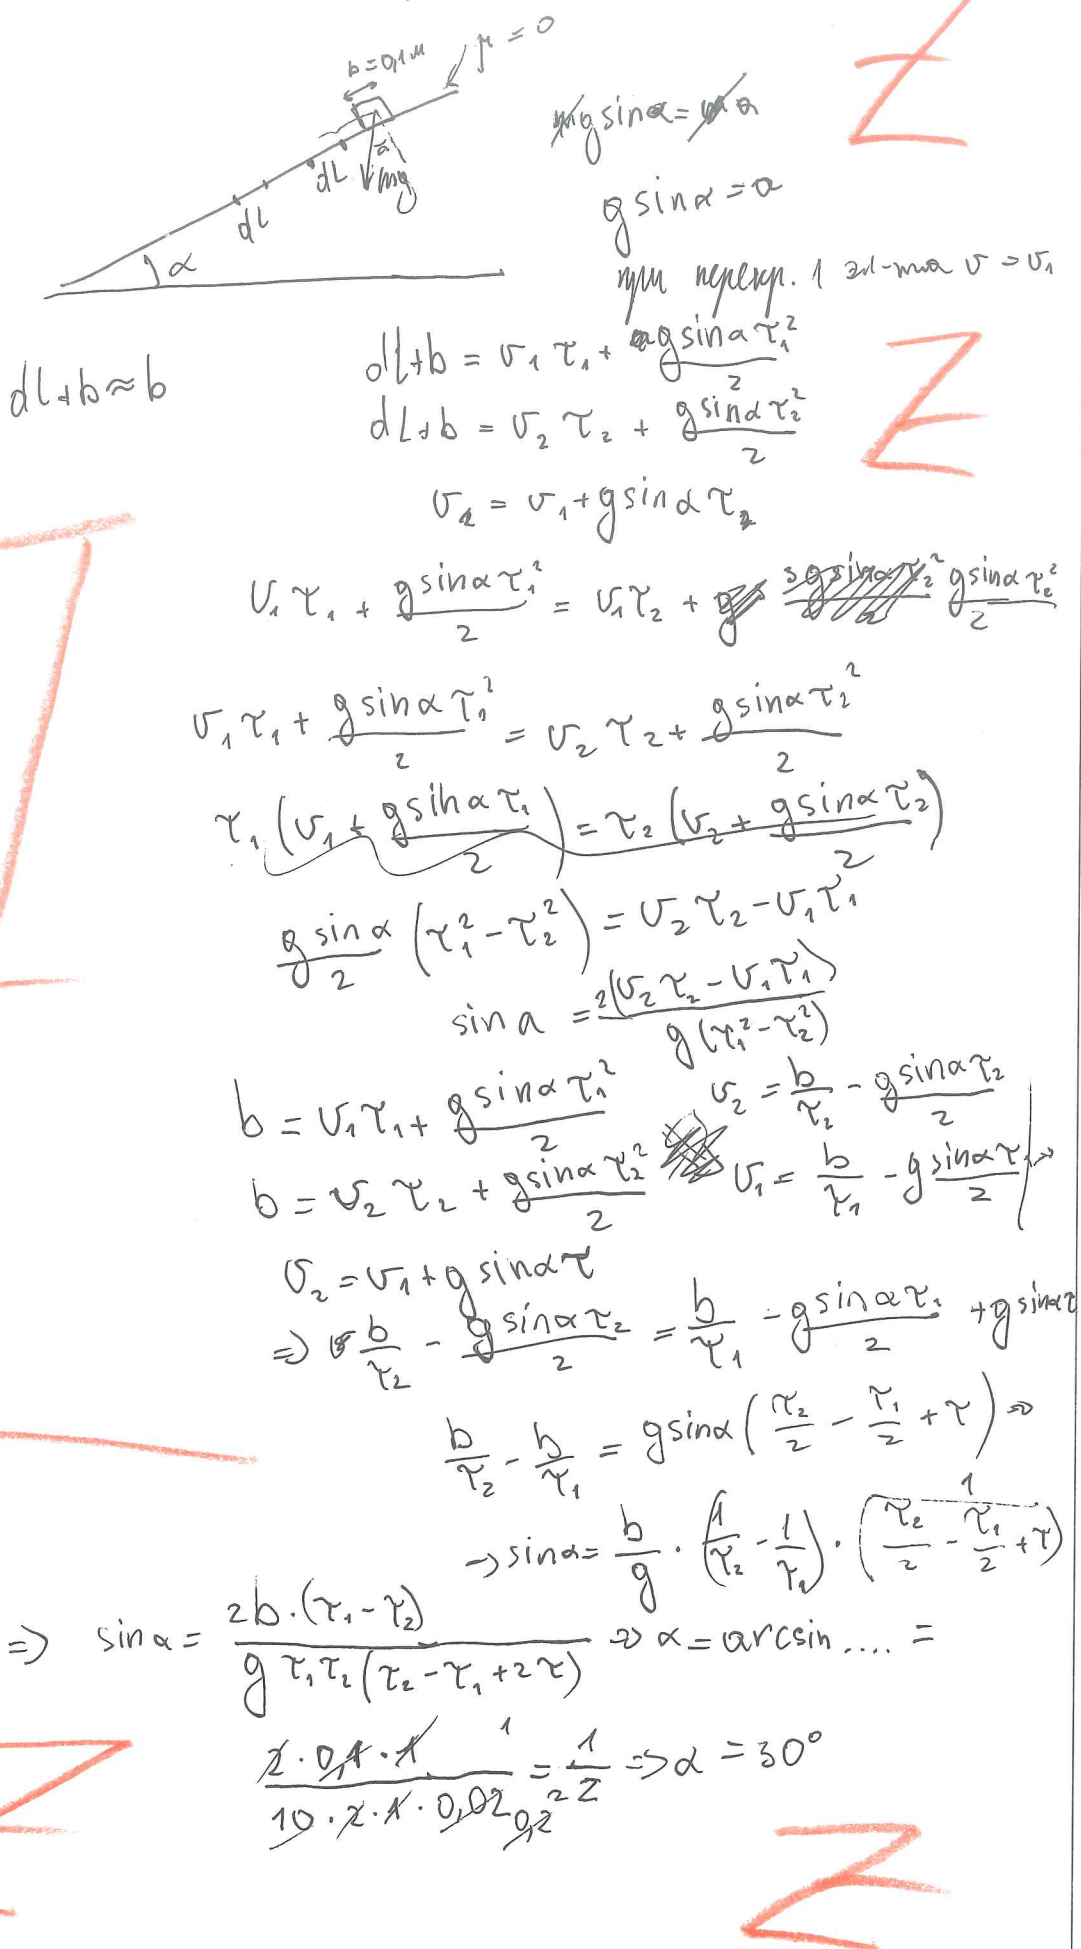 b=0,1м
μ=0
dL
a⃗
mg
dL
α
mg sinα = ma
g sinα = a
при перекр. 1 эл-та v = v₁
dL+b≈b
dL+b = v₁ τ₁ + g sinα τ₁²/2
dL+b = v₂ τ₂ + g sinα τ₂²/2
v₂ = v₁ + g sinα τ₂
v₁ τ₁ + g sinα τ₁²/2 = v₁τ₂ + g sinα τ₂²/2
v₁ τ₁ + g sinα τ₁²/2 = v₂ τ₂ + g sinα τ₂²/2
τ₁ (v₁ + g sinα τ₁/2) = τ₂ (v₂ + g sinα τ₂/2)
g sinα/2 (τ₁² - τ₂²) = v₂ τ₂ - v₁ τ₁
sin a = 2(v₂ τ₂ - v₁ τ₁)/g(τ₁² - τ₂²)
b = v₁ τ₁ + g sinα τ₁²/2
v₂ = b/τ₂ - g sinα τ₂/2
b = v₂ τ₂ + g sinα τ₂²/2
v₁ = b/τ₁ - g sinα τ₁/2 ⇒
v₂ = v₁ + g sinα τ
⇒ b/τ₂ - g sinα τ₂/2 = b/τ₁ - g sinα τ₁/2 + g sinα τ
b/τ₂ - b/τ₁ = g sinα (τ₂/2 - τ₁/2 + τ) ⇒
⇒ sinα = b/g · (1/τ₂ - 1/τ₁) · 1/(τ₂/2 - τ₁/2 + τ)
⇒ sinα = 2b·(τ₁ - τ₂)/g τ₁ τ₂ (τ₂ - τ₁ + 2τ) ⇒ α = arcsin .... =
2·0,1·1/10·2·1·0,02 = 1/2 ⇒ α = 30°